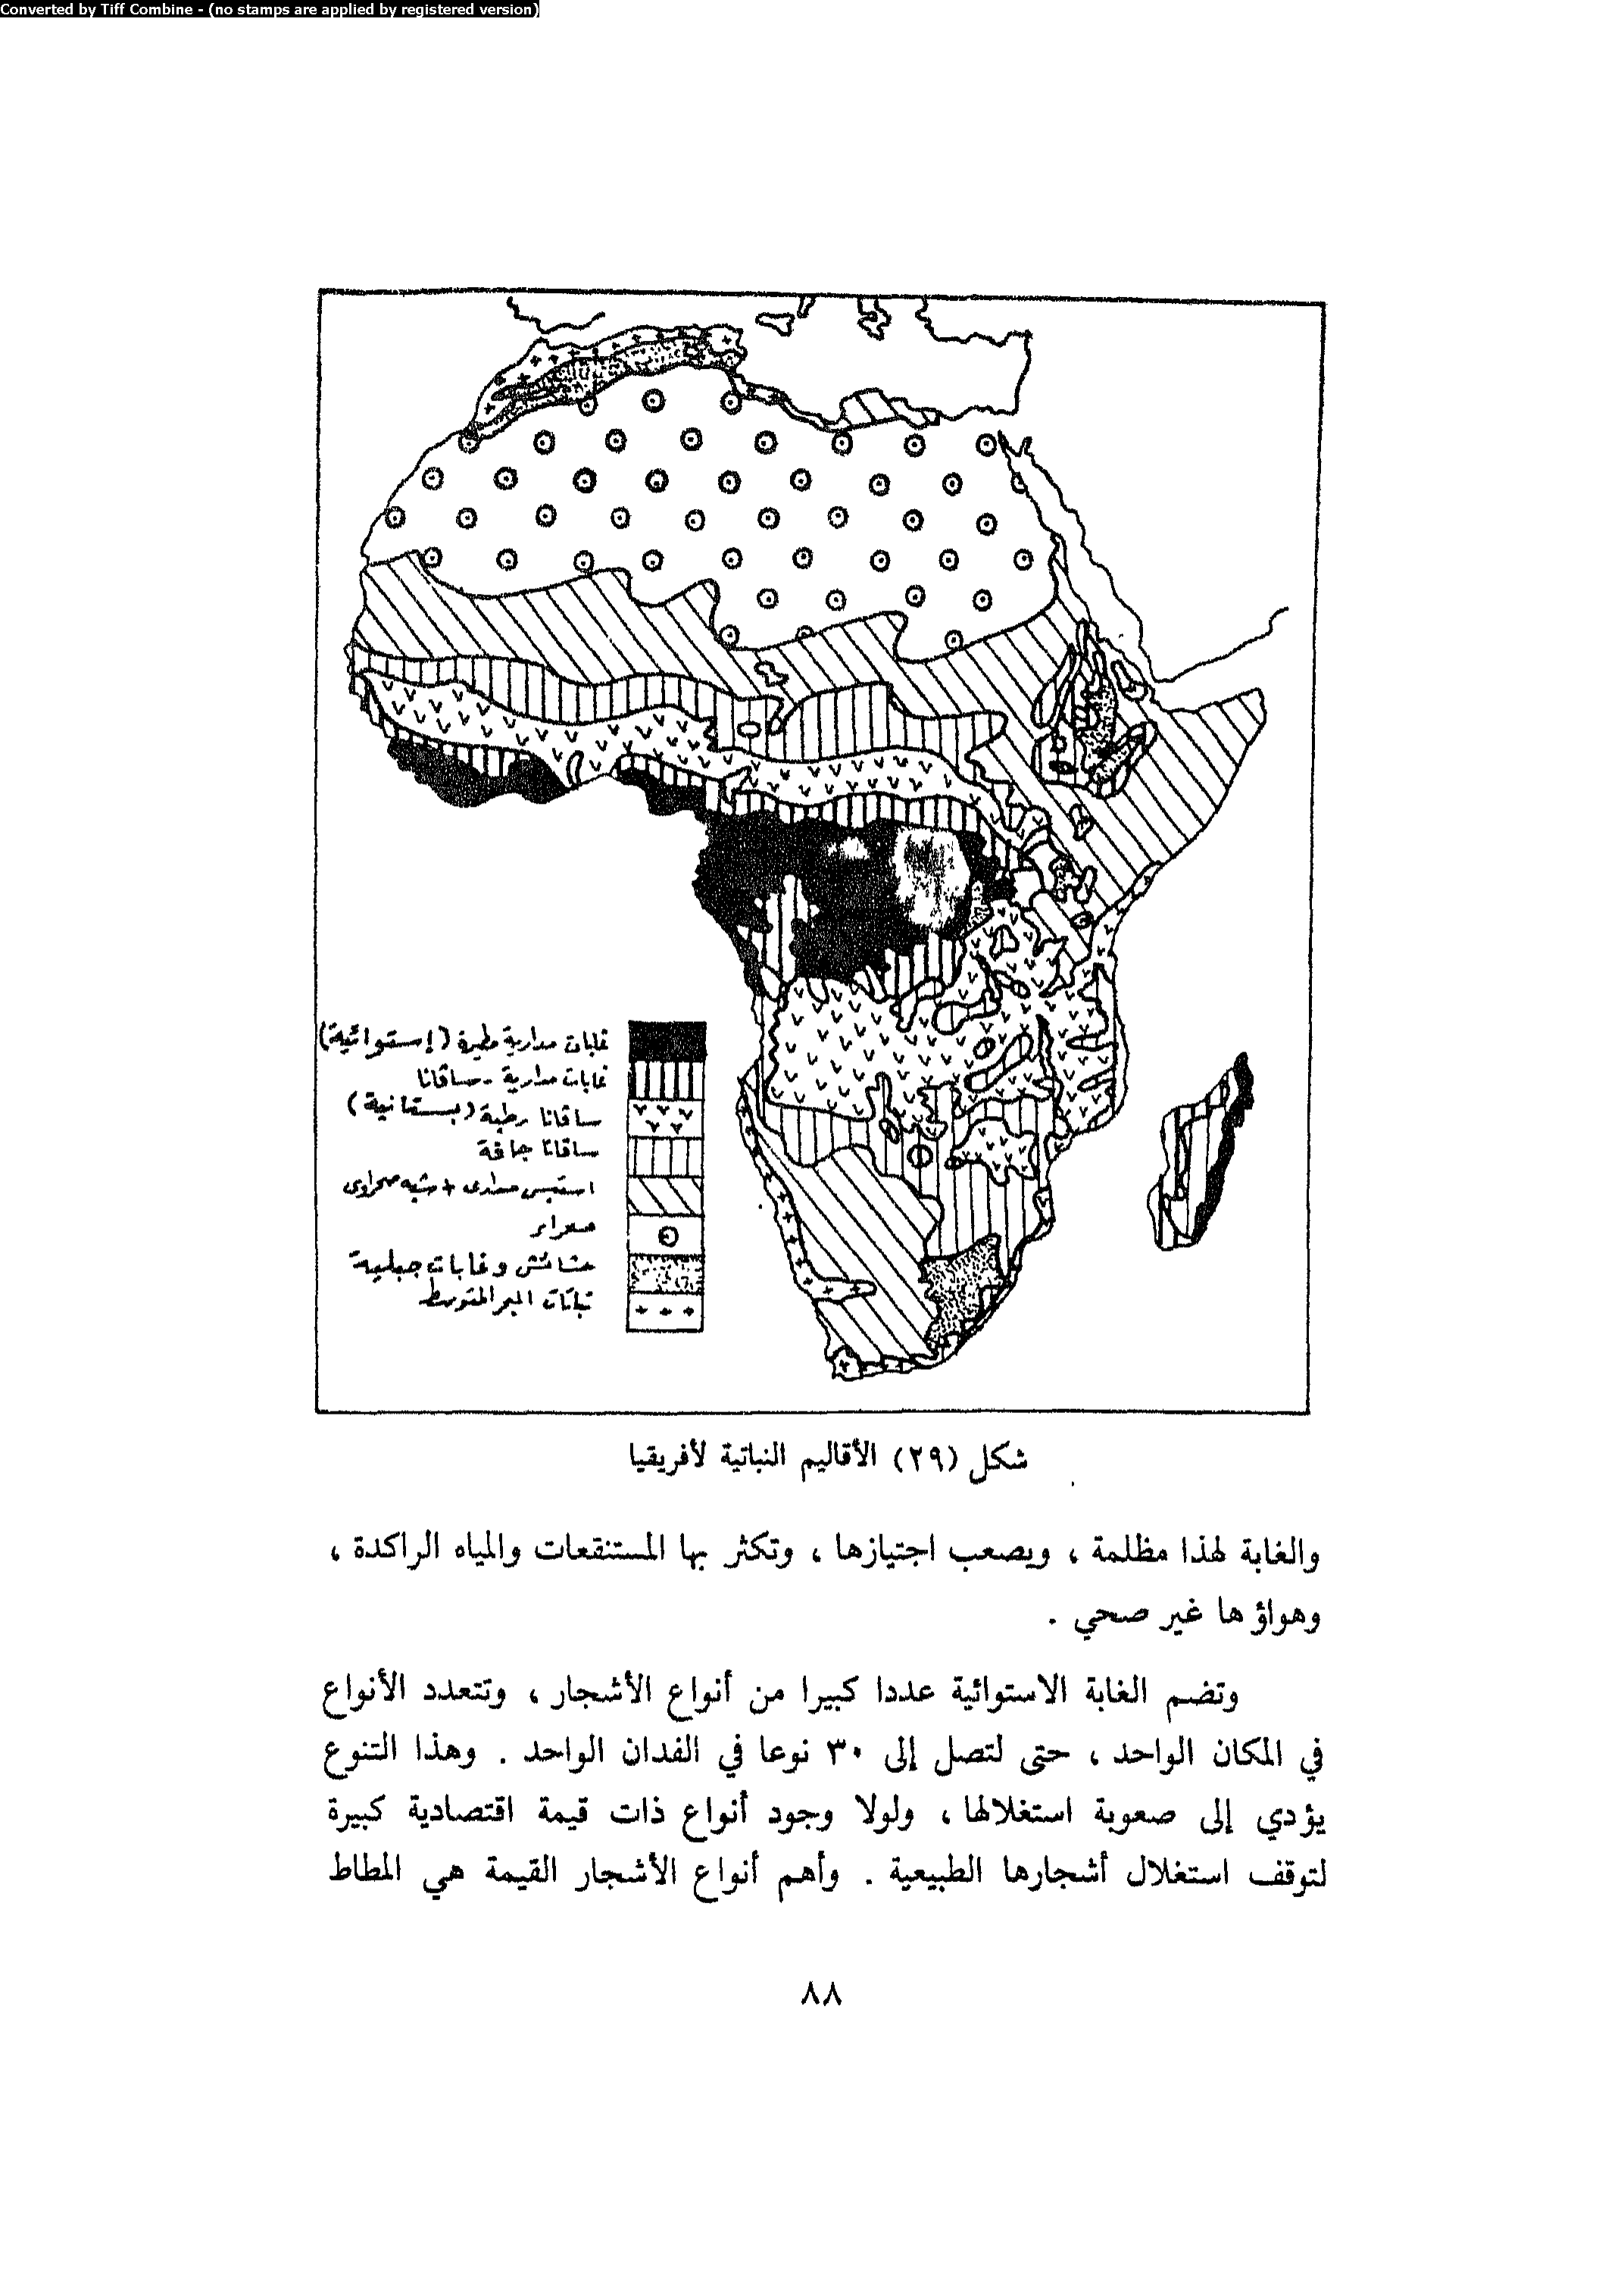 Converted by Tiff Combine - (no stamps are applied by registered version)
غابات مدارية مطيرة (إستوائية)
غابات مدارية - سافانا
سافانا رطبة (بستانية)
سافانا جافة
استبس مدارى + شبه صحراوى
صحراء
حشائش وغابات جبلية
نباتات البحر المتوسط
شكل (٢٩) الأقاليم النباتية لأفريقيا
والغابة لهذا مظلمة ، ويصعب اجتيازها ، وتكثر بها المستنقعات والمياه الراكدة ،
وهواؤها غير صحي .
وتضم الغابة الاستوائية عددا كبيرا من أنواع الأشجار ، وتتعدد الأنواع
في المكان الواحد ، حتى لتصل إلى ٣٠ نوعا في الفدان الواحد . وهذا التنوع
يؤدي إلى صعوبة استغلالها ، ولولا وجود أنواع ذات قيمة اقتصادية كبيرة
لتوقف استغلال أشجارها الطبيعية . وأهم أنواع الأشجار القيمة هي المطاط
٨٨